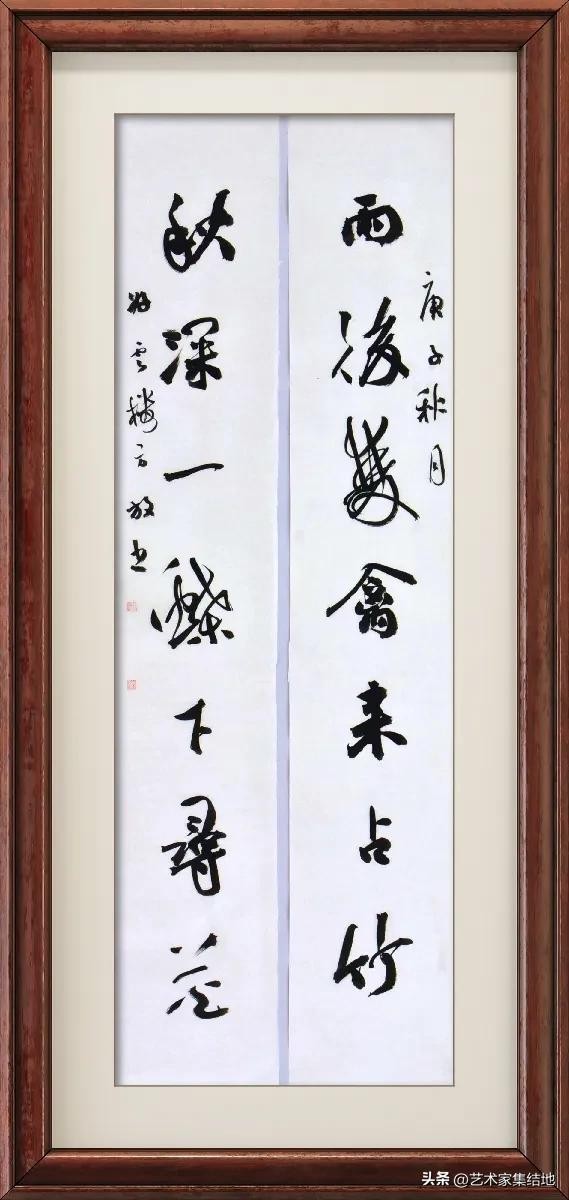 庚子秋月
雨後雙禽来占竹
秋深一蝶下尋花
雲樓方放书
头条 @艺术家集结地